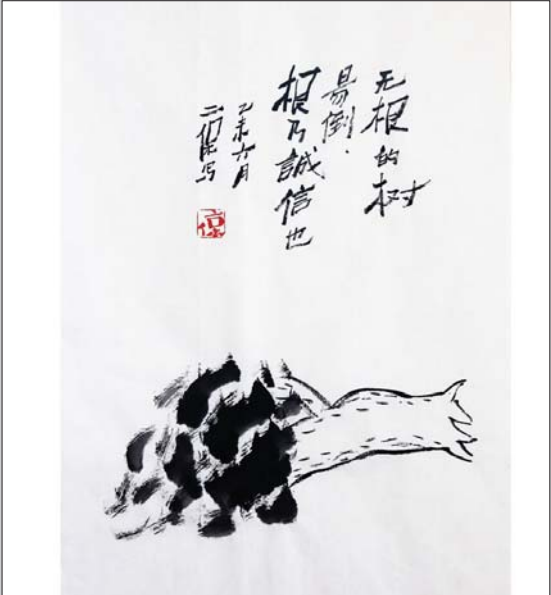 无根的树
易倒.
根乃誠信也
乙未六月
写